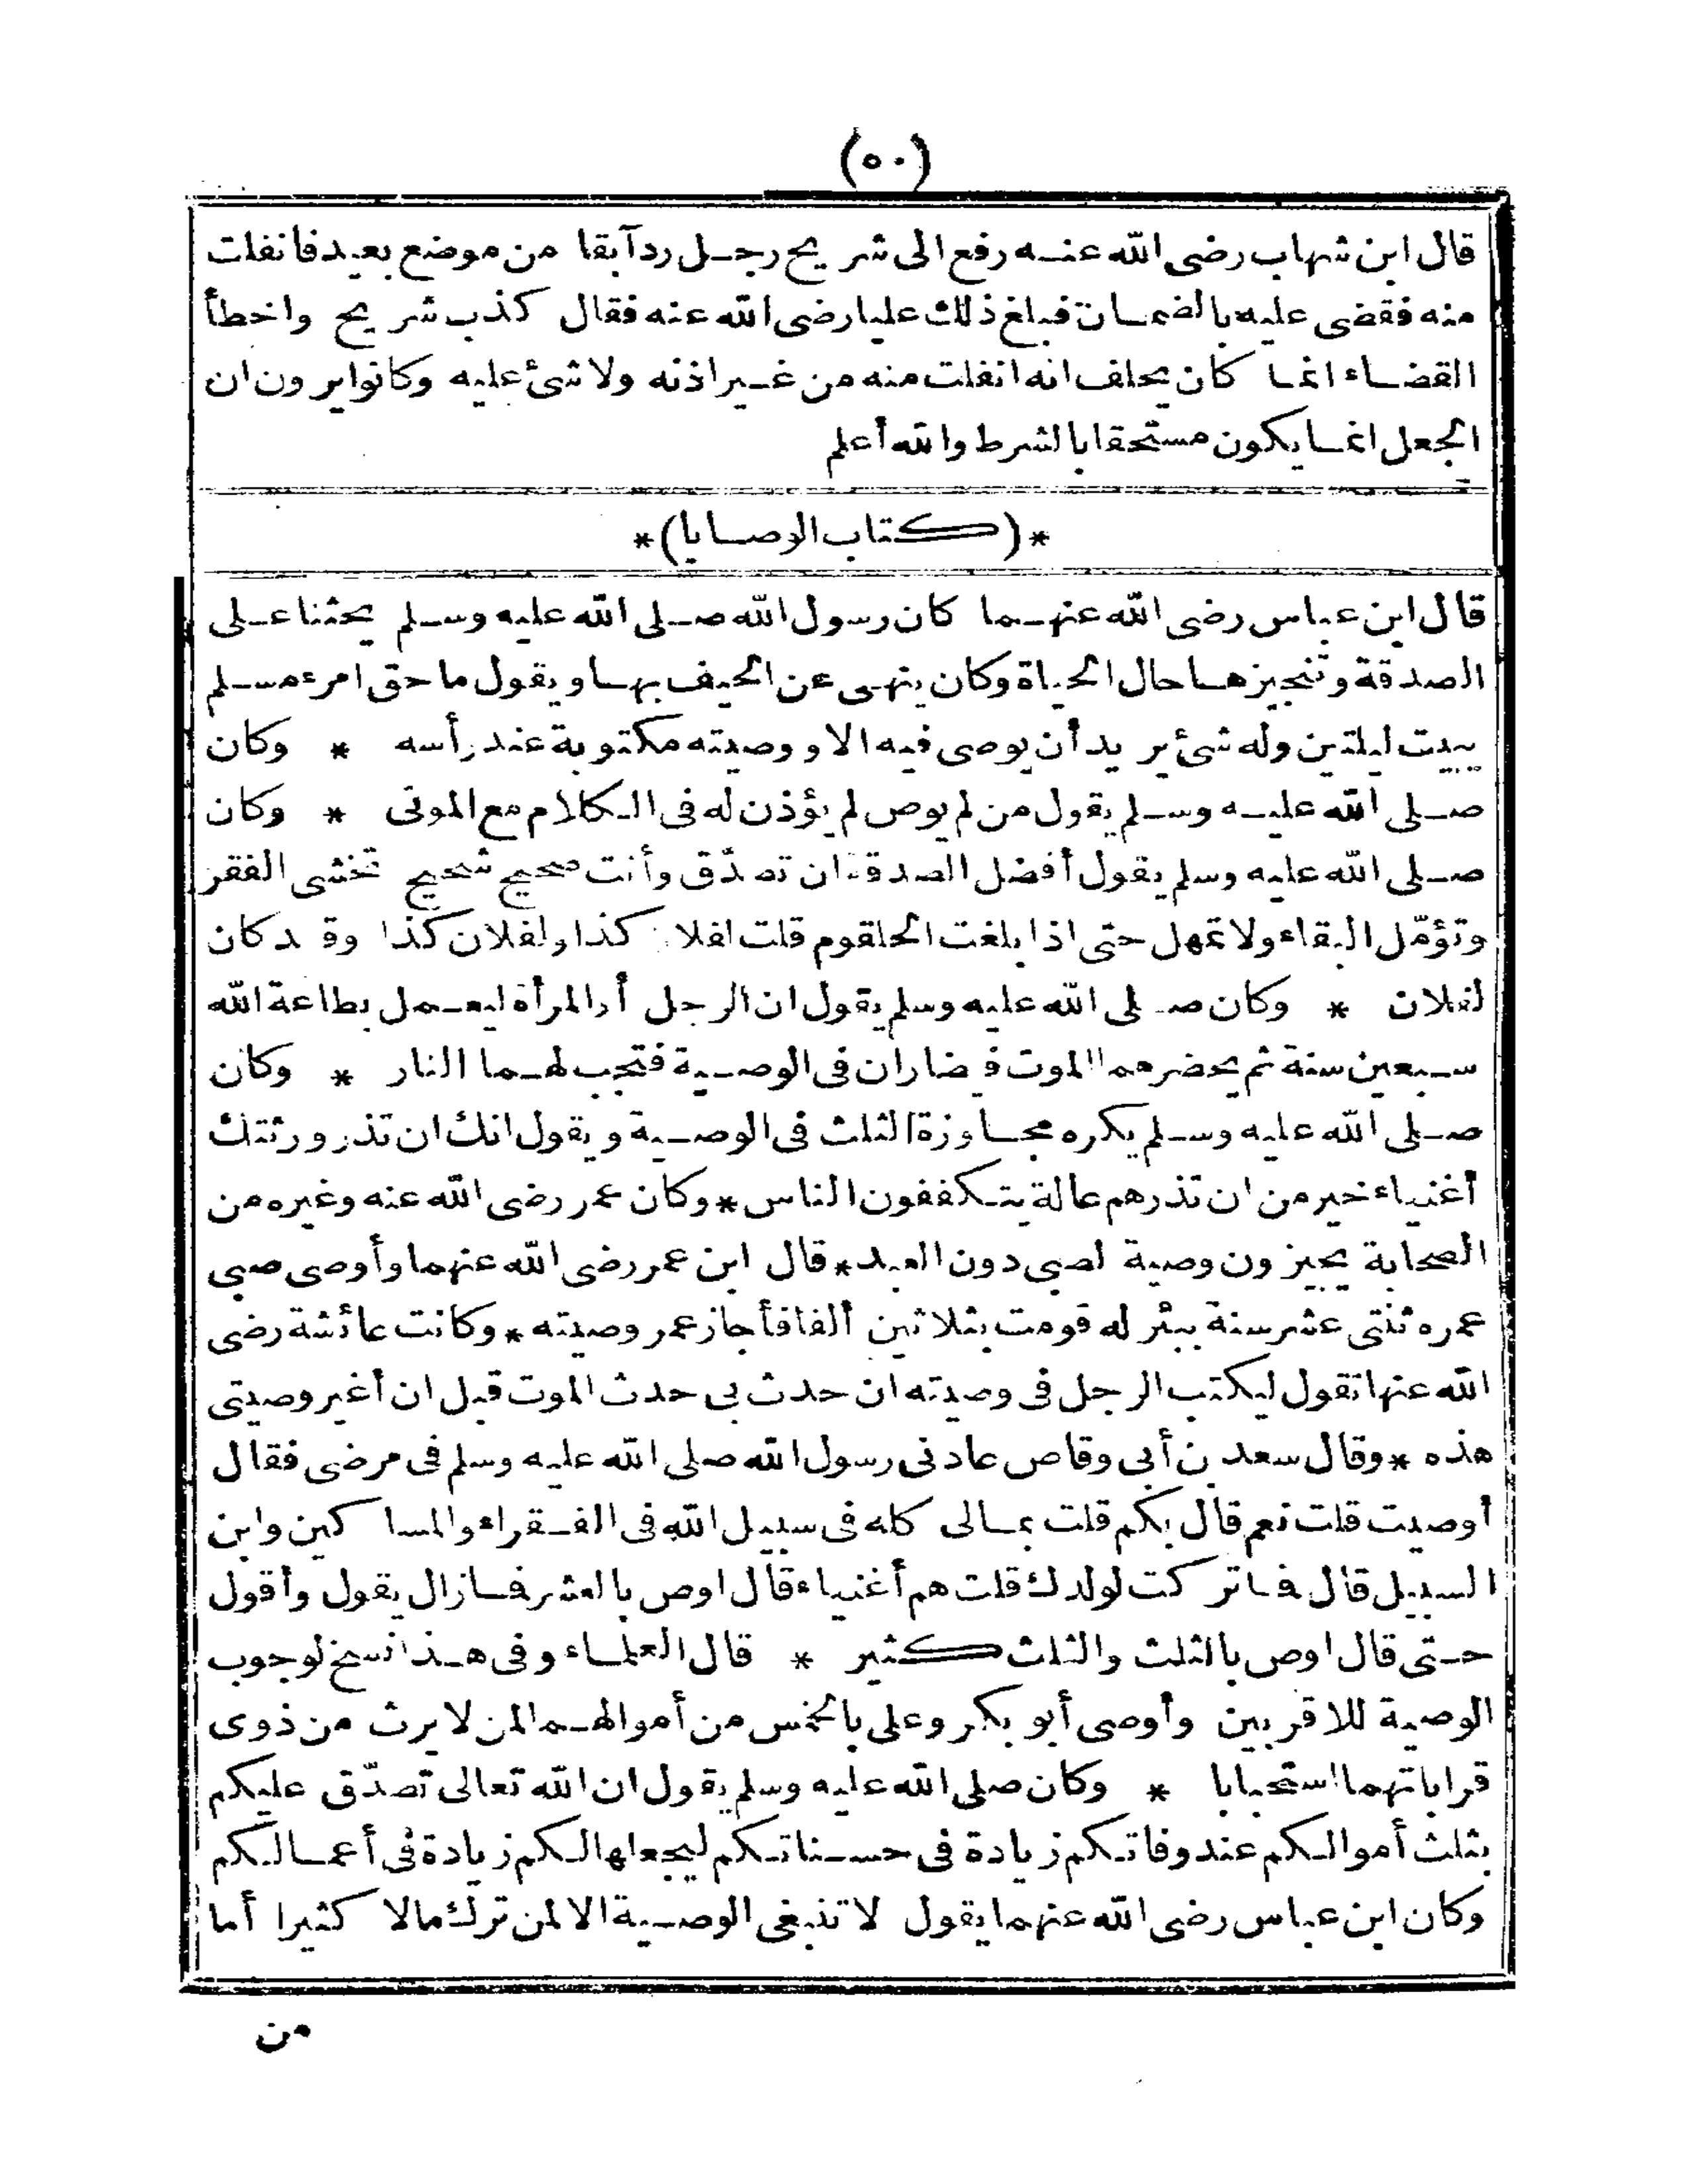 (٥٠)
قال ابن شهاب رضى الله عنه رفع الى شريح رجل رد آبقا من موضع بعيد فانفلت
منه فقضى عليه بالضمان فبلغ ذلك عليا رضى الله عنه فقال كذب شريح واخطأ
القضاء انما كان يحلف انه انفلت منه من غير اذنه ولا شئ عليه وكانوا يرون ان
الجعل انما يكون مستحقا بالشرط والله أعلم
*(كتاب الوصايا)*
قال ابن عباس رضى الله عنهما كان رسول الله صلى الله عليه وسلم يحثنا على
الصدقة وتنجيزها حال الحياة وكان ينهى عن الحيف بها ويقول ما حق امرء مسلم
يبيت ليلتين وله شئ يريد أن يوصى فيه الا ووصيته مكتوبة عند رأسه * وكان
صلى الله عليه وسلم يقول من لم يوص لم يؤذن له فى الكلام مع الموتى * وكان
صلى الله عليه وسلم يقول أفضل الصدقة ان تصدّق وأنت صحيح شحيح تخشى الفقر
وتؤمّل البقاء ولا تمهل حتى اذا بلغت الحلقوم قلت لفلان كذا ولفلان كذا وقد كان
لفلان * وكان صلى الله عليه وسلم يقول ان الرجل أو المرأة ليعمل بطاعة الله
سبعين سنة ثم يحضرهما الموت فيضاران فى الوصية فتجب لهما النار * وكان
صلى الله عليه وسلم يكره مجاوزة الثلث فى الوصية ويقول انك ان تذر ورثتك
أغنياء خير من ان تذرهم عالة يتكففون الناس * وكان عمر رضى الله عنه وغيره من
الصحابة يجيزون وصية لصبى دون العبد * قال ابن عمر رضى الله عنهما وأوصى صبى
عمره ثنتى عشر سنة ببئر له قومت بثلاثين ألفا فأجاز عمر وصيته * وكانت عائشة رضى
الله عنها تقول ليكتب الرجل فى وصيته ان حدث بى حدث الموت قبل ان أغير وصيتى
هذه * وقال سعد بن أبى وقاص عادنى رسول الله صلى الله عليه وسلم فى مرضى فقال
أوصيت قلت نعم قال بكم قلت بمالى كله فى سبيل الله فى الفقراء والمساكين وابن
السبيل قال فما تركت لولدك قلت هم أغنياء قال اوص بالعشر فما زال يقول وأقول
حتى قال اوص بالثلث والثلث كثير * قال العلماء وفى هذا نسخ لوجوب
الوصية للاقربين وأوصى أبو بكر وعلى بالخمس من أموالهما لمن لا يرث من ذوى
قراباتهما استحبابا * وكان صلى الله عليه وسلم يقول ان الله تعالى تصدّق عليكم
بثلث أموالكم عند وفاتكم زيادة فى حسناتكم ليجعلها لكم زيادة فى أعمالكم
وكان ابن عباس رضى الله عنهما يقول لا تنبغى الوصية الا لمن ترك مالا كثيرا أما
من